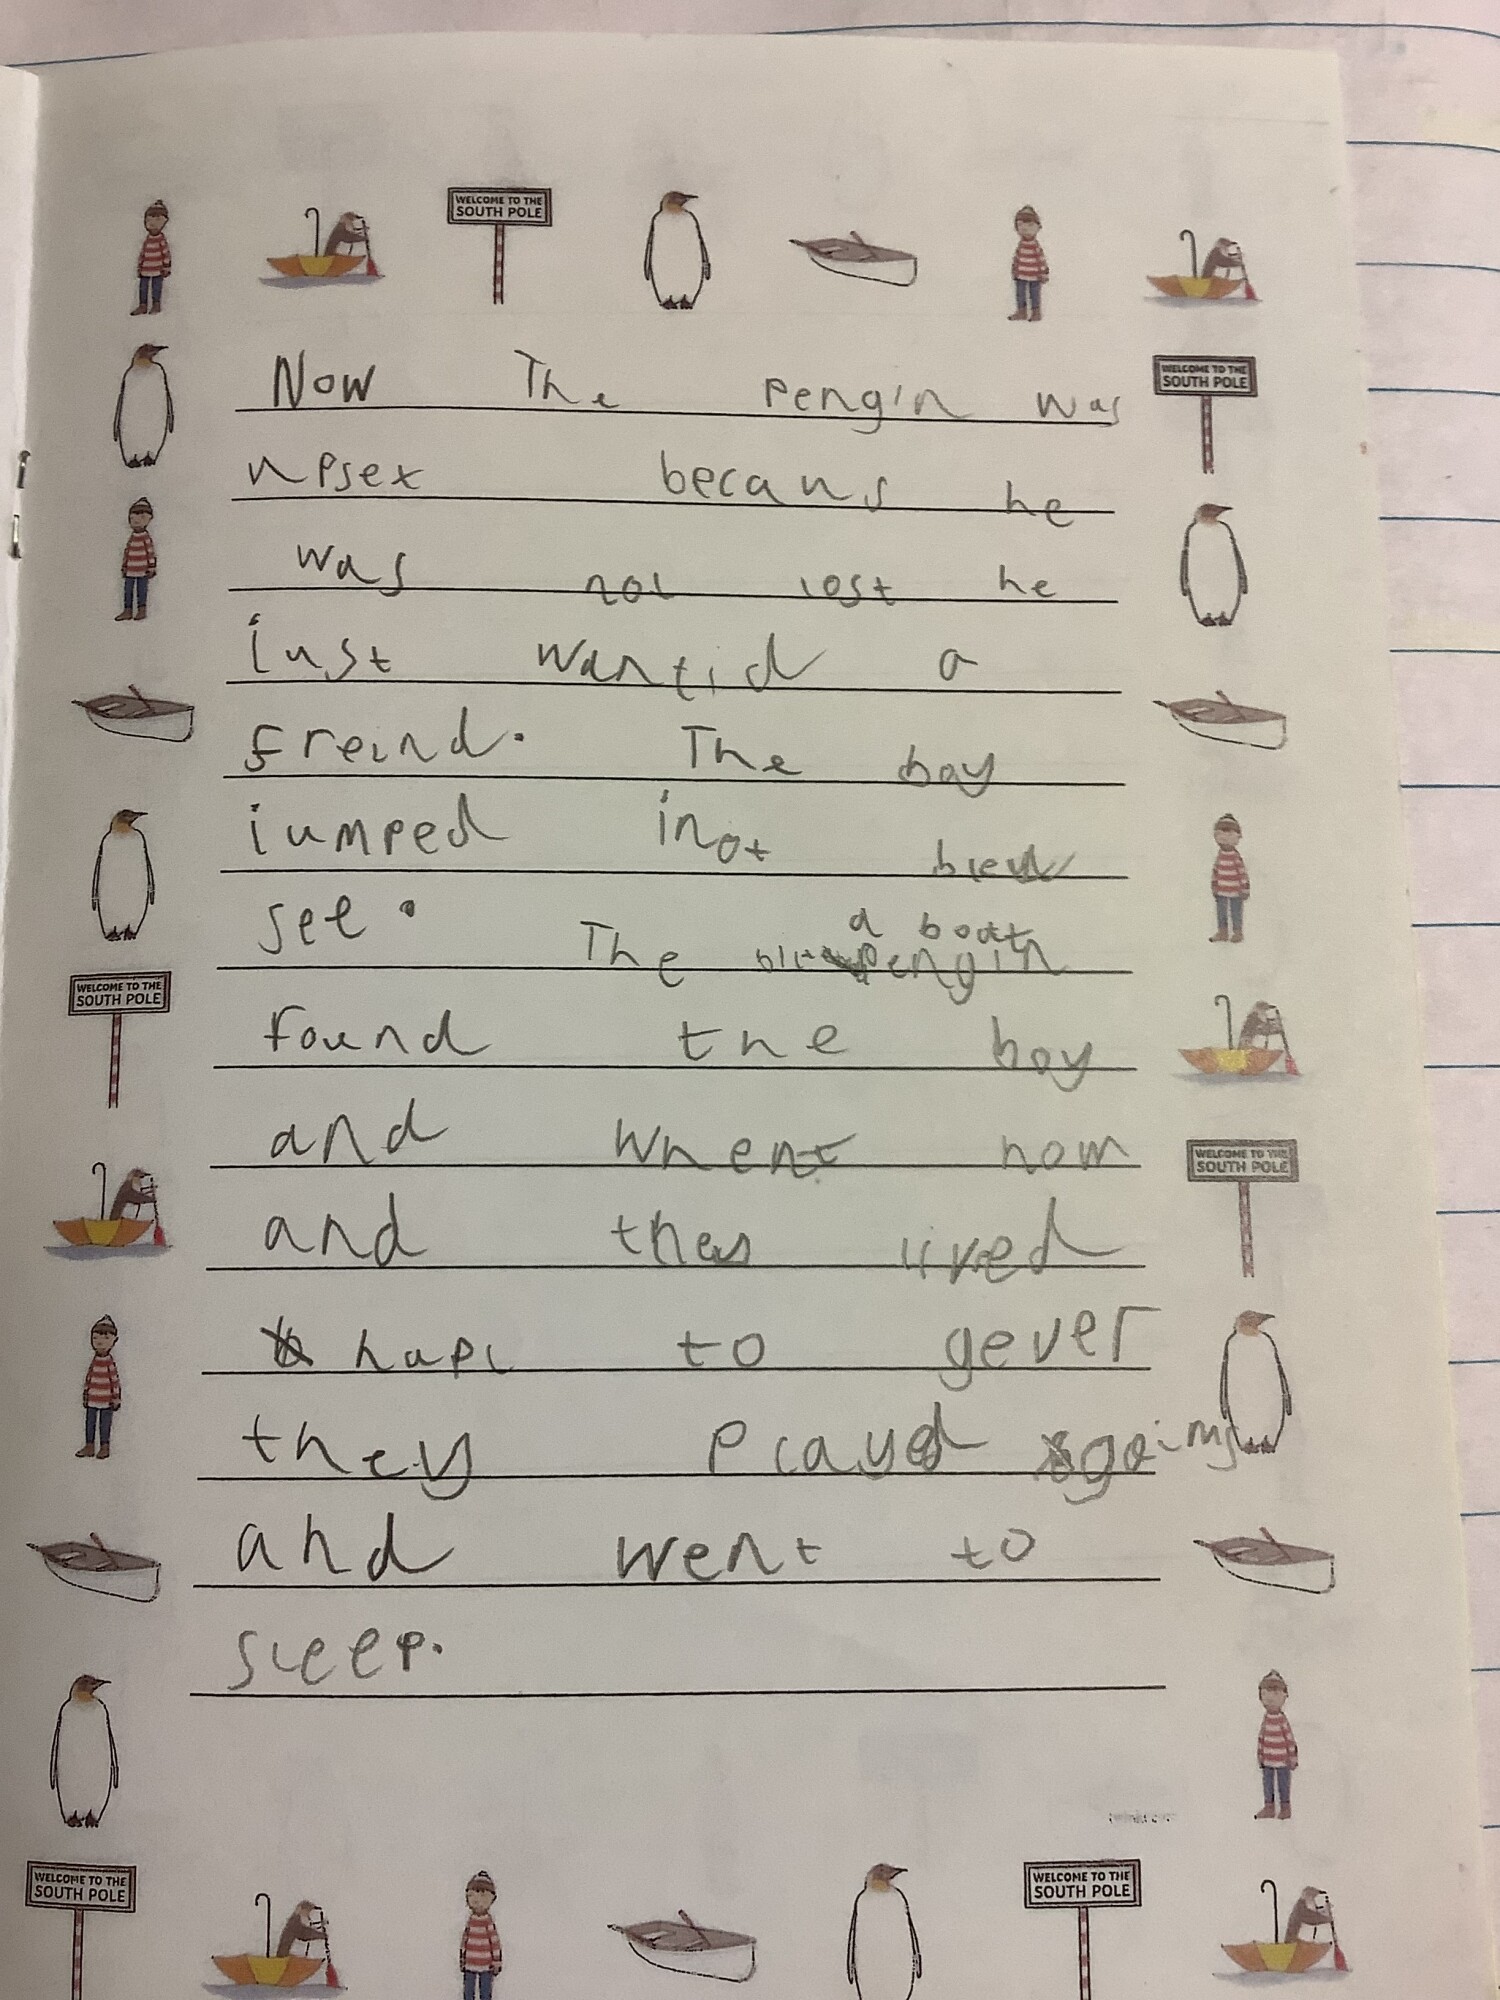 WELCOME TO THE
SOUTH POLE
WELCOME TO THE
SOUTH POLE
Now The pengin was
upset becaus he
was not lost he
just wantid a
freind. The boy
jumped inot blew
see. The pengin
a boat
found the boy
and whent hom
and they lived
hapi to gever
they played gaims
and went to
sleep.
WELCOME TO THE
SOUTH POLE
WELCOME TO THE
SOUTH POLE
WELCOME TO THE
SOUTH POLE
WELCOME TO THE
SOUTH POLE